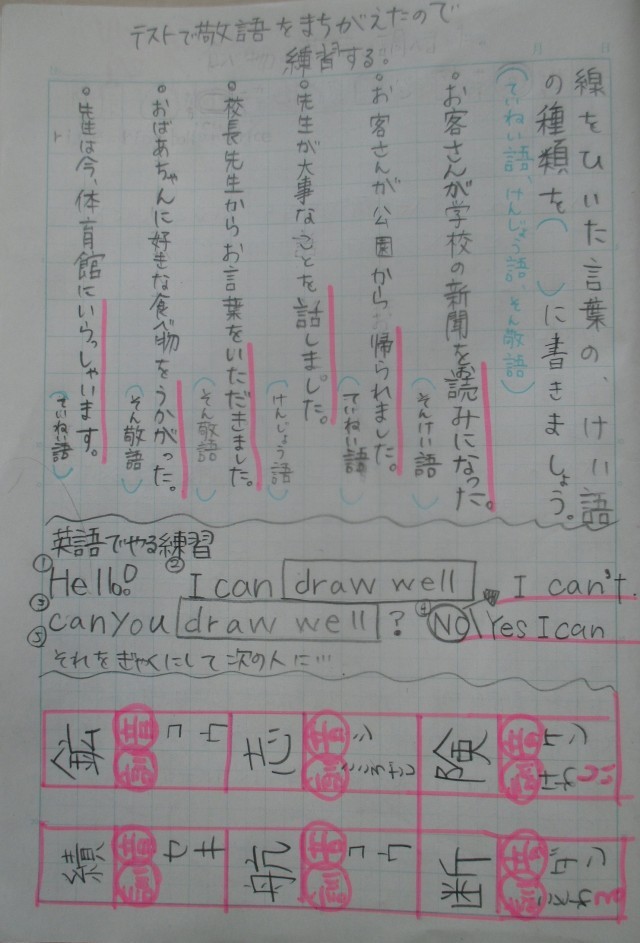 テストで敬語をまちがえたので
練習する。
線をひいた言葉の、けい語
の種類を( )に書きましょう。
(ていねい語、けんじょう語、そん敬語)
・お客さんが学校の新聞をお読みになった。
(そんけい語)
・お客さんが公園からお帰られました。
(ていねい語)
・先生が大事なことを話しました。
(けんじょう語)
・校長先生からお言葉をいただきました。
(そん敬語)
・おばあちゃんに好きな食べ物をうかがった。
(そん敬語)
・先生は今、体育館にいらっしゃいます。
(ていねい語)
英語でやる練習
① Hello! ② I can draw well I can't.
③ can you draw well? ④ No Yes I can
⑤ それをぎゃくにして次の人に…
鉱 音 コウ 訓
志 音 シ 訓 こころざし
険 音 ケン 訓 けわしい
績 音 セキ 訓
航 音 コウ 訓
断 音 ダン 訓 ことわる